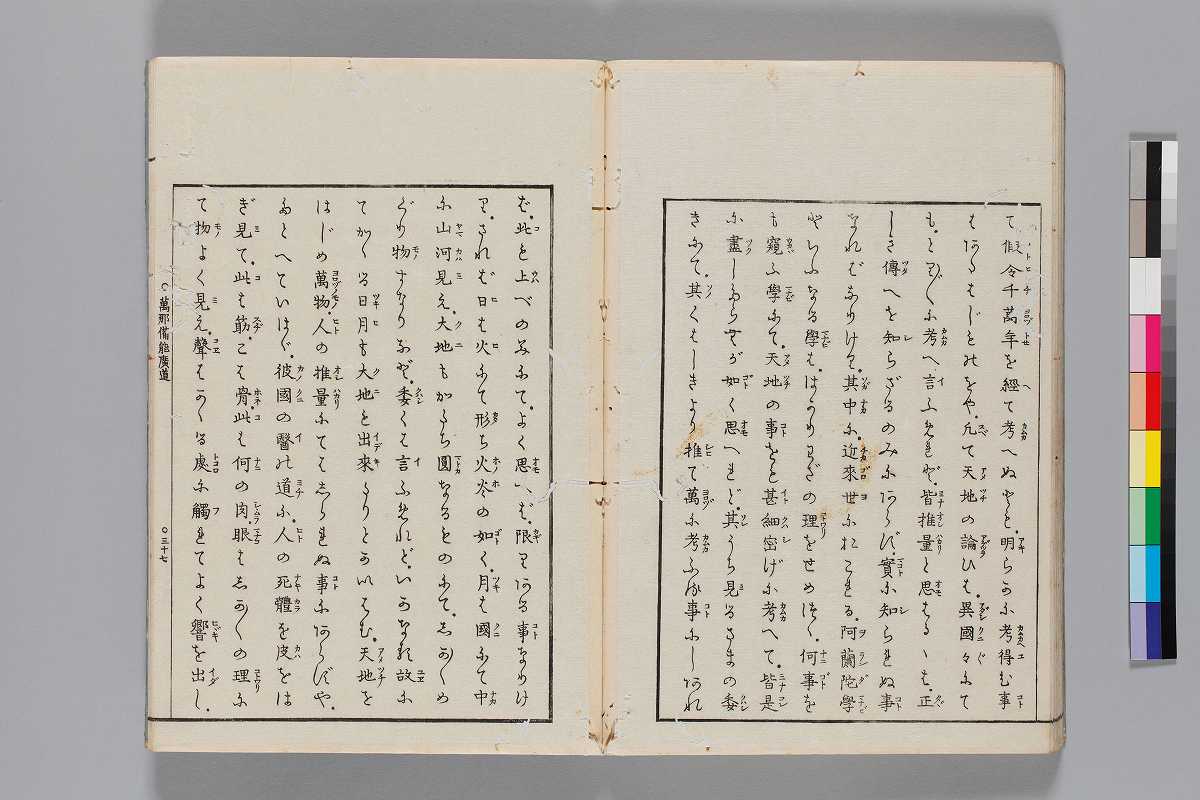 て假令千萬年を經て考へぬとも。明らかに考得む事
はあるまじきものをや。凡て天地の論ひは。異國々にて
も。とりどりに考へ言ふめれど。皆推量と思はるゝは。正
しき傳へを知らざるのみにあらず。實に知られぬ事
なればなりけり。其中に。近來世におこれる。阿蘭陀學
といふなる學は。はかりわざの理をせめつく。何事を
も窺ふ學にて。天地の事をも甚細密げに考へて。皆是
に盡しぬらむが如く思へれど。其うち見るさまの委
きにて。其くはしきより推て萬に考ふる事にしあれ
ば。此も上べのみにて。よく思へば。限りある事なりけ
り。されば日は火にて形ち火炎の如く。月は國にて中
に山河見え。大地もかたち圓なるものにて。しかしかめ
ぐり物すなりなど。委くは言ふめれど。いかなる故に
てかくる日月も大地も出來たりとかいはむ。天地を
はじめ萬物。人の推量にてはしられぬ事にあらずや。
たとへていはゞ。彼國の醫の道に。人の死體を皮をは
ぎ見て。此は筋。こは骨。此は何の肉。眼はしかしかの理に
て物よく見え。聲はかゝる處に觸れてよく響を出し。
萬那備能廣道
○三十七